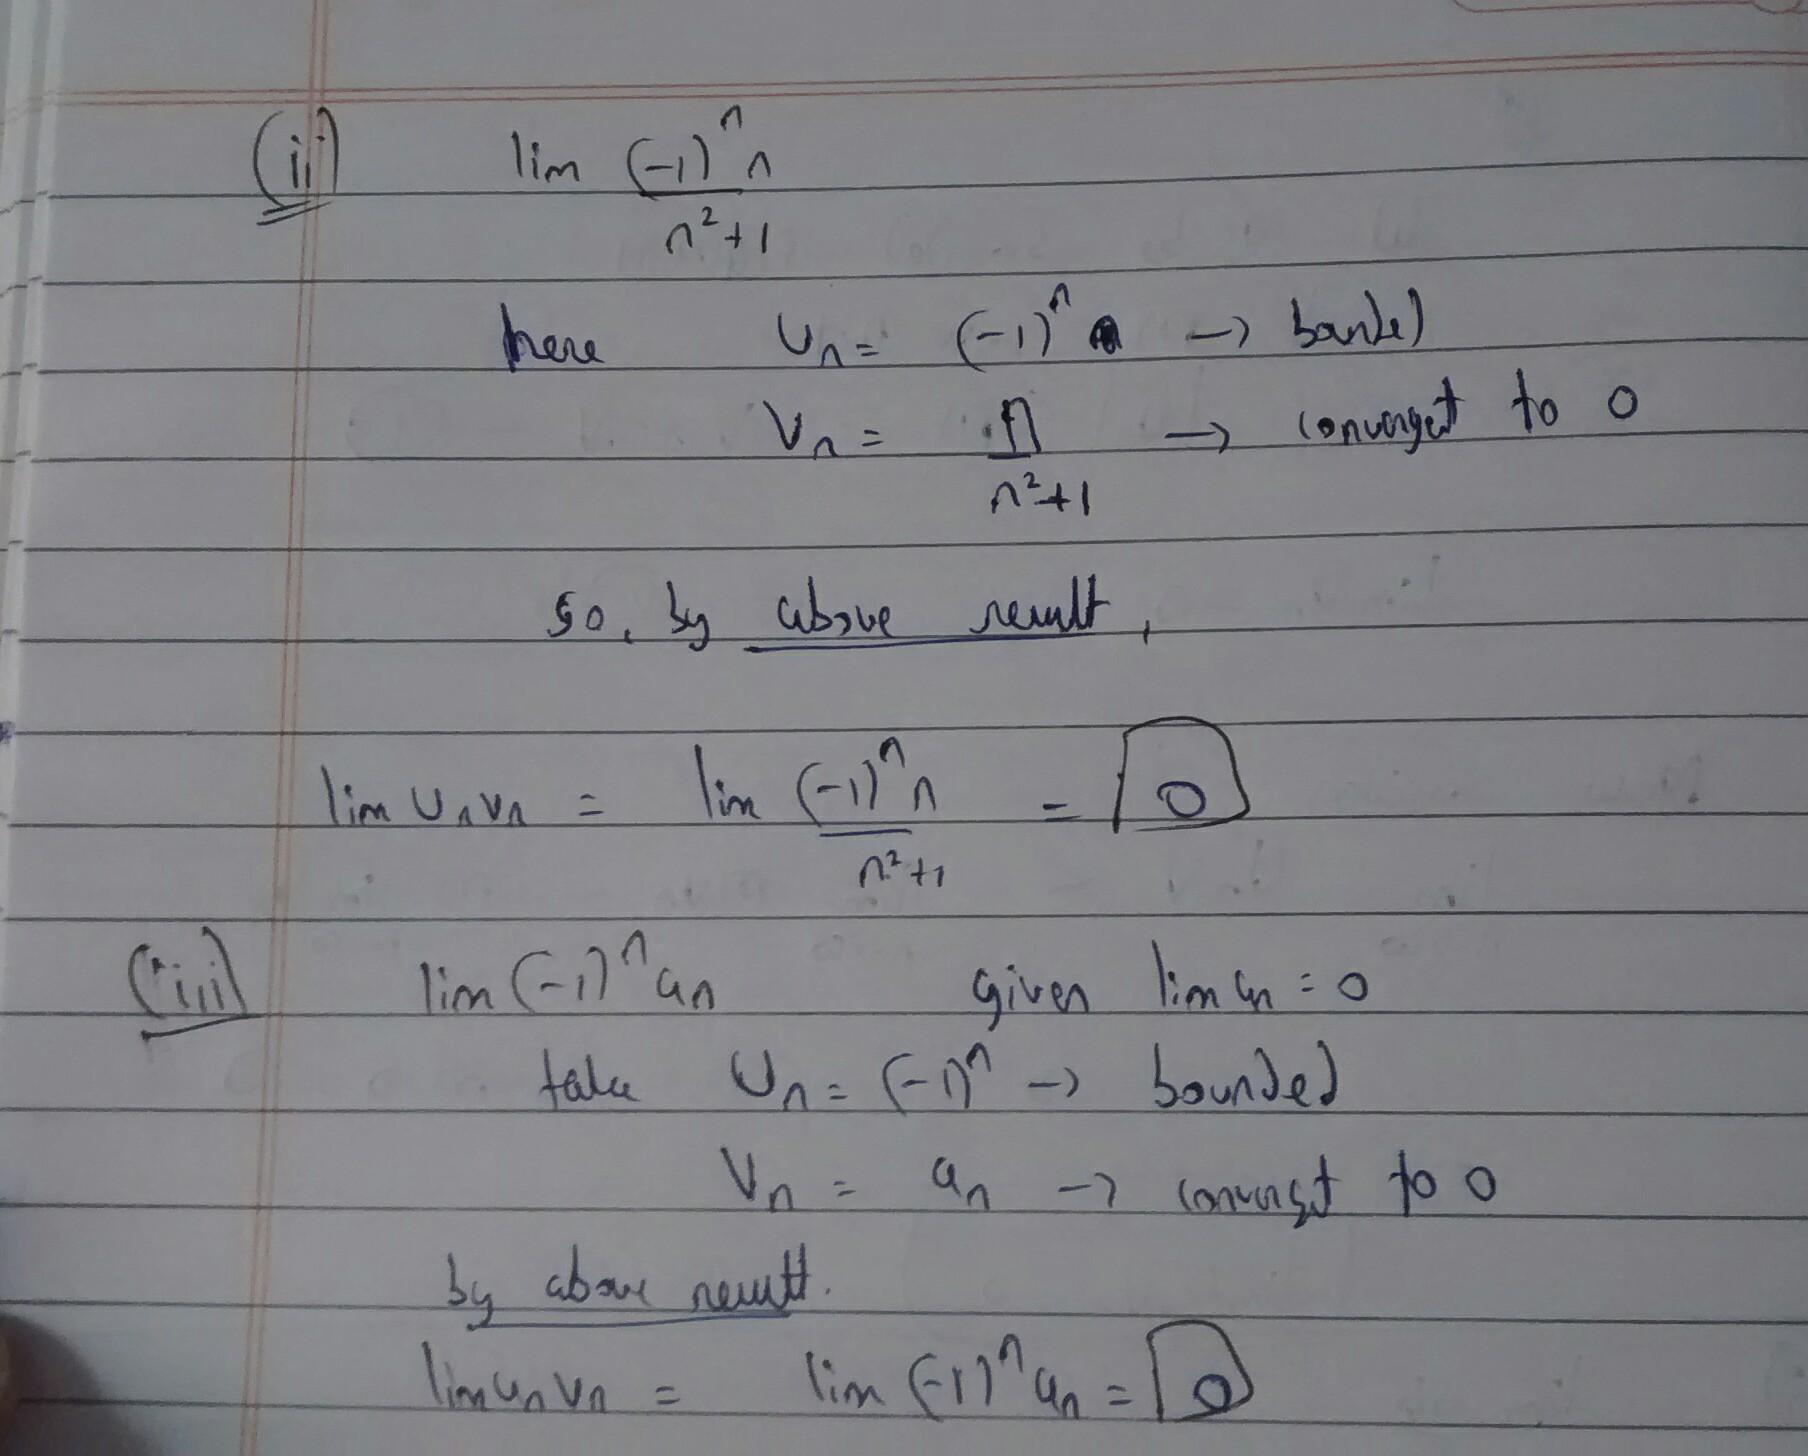 (ii) lim (-1)^n n
n²+1
here Un = (-1)^n → bounded
Vn = n → convergent to 0
n²+1
so, by above result,
lim UnVn = lim (-1)^n n = 0
n²+1
(iii) lim (-1)^n an given lim an = 0
take Un = (-1)^n → bounded
Vn = an → convergent to 0
by above result.
lim un vn = lim (-1)^n an = 0